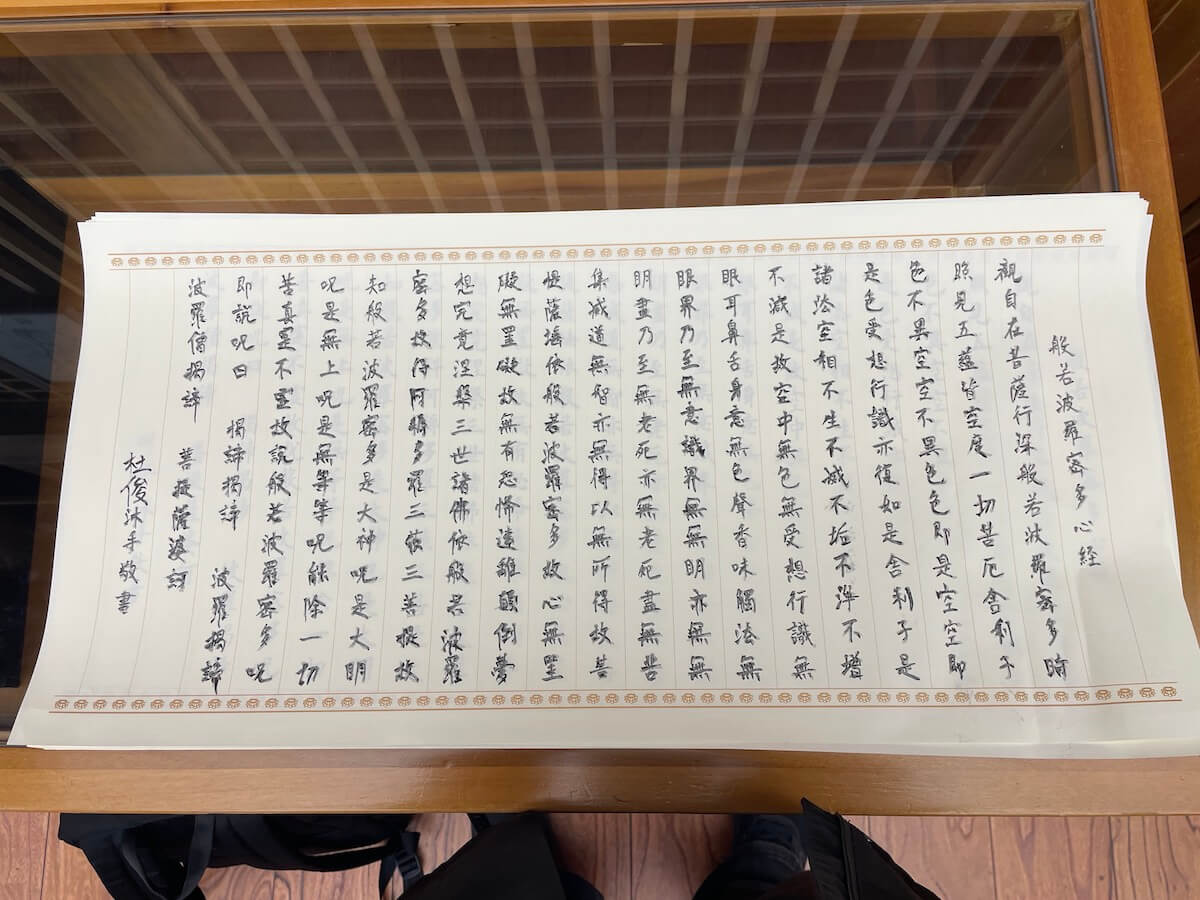 般若波羅密多心経
観自在菩薩行深般若波羅密多時
照見五蘊皆空度一切苦厄舍利子
色不異空空不異色色即是空空即
是色受想行識亦復如是舍利子是
諸法空相不生不滅不垢不淨不增
不減是故空中無色無受想行識無
眼耳鼻舌身意無色聲香味觸法無
眼界乃至無意識界無無明亦無無
明盡乃至無老死亦無老死盡無苦
集滅道無智亦無得以無所得故菩
提薩埵依般若波羅密多故心無罣
礙無罣礙故無有恐怖遠離顛倒夢
想究竟涅槃三世諸佛依般若波羅
密多故得阿耨多羅三藐三菩提故
知般若波羅密多是大神呪是大明
呪是無上呪是無等等呪能除一切
苦真實不虛故說般若波羅密多呪
即說呪曰 揭諦揭諦 波羅揭諦
波羅僧揭諦 菩提薩婆訶
杜俊沐手敬書